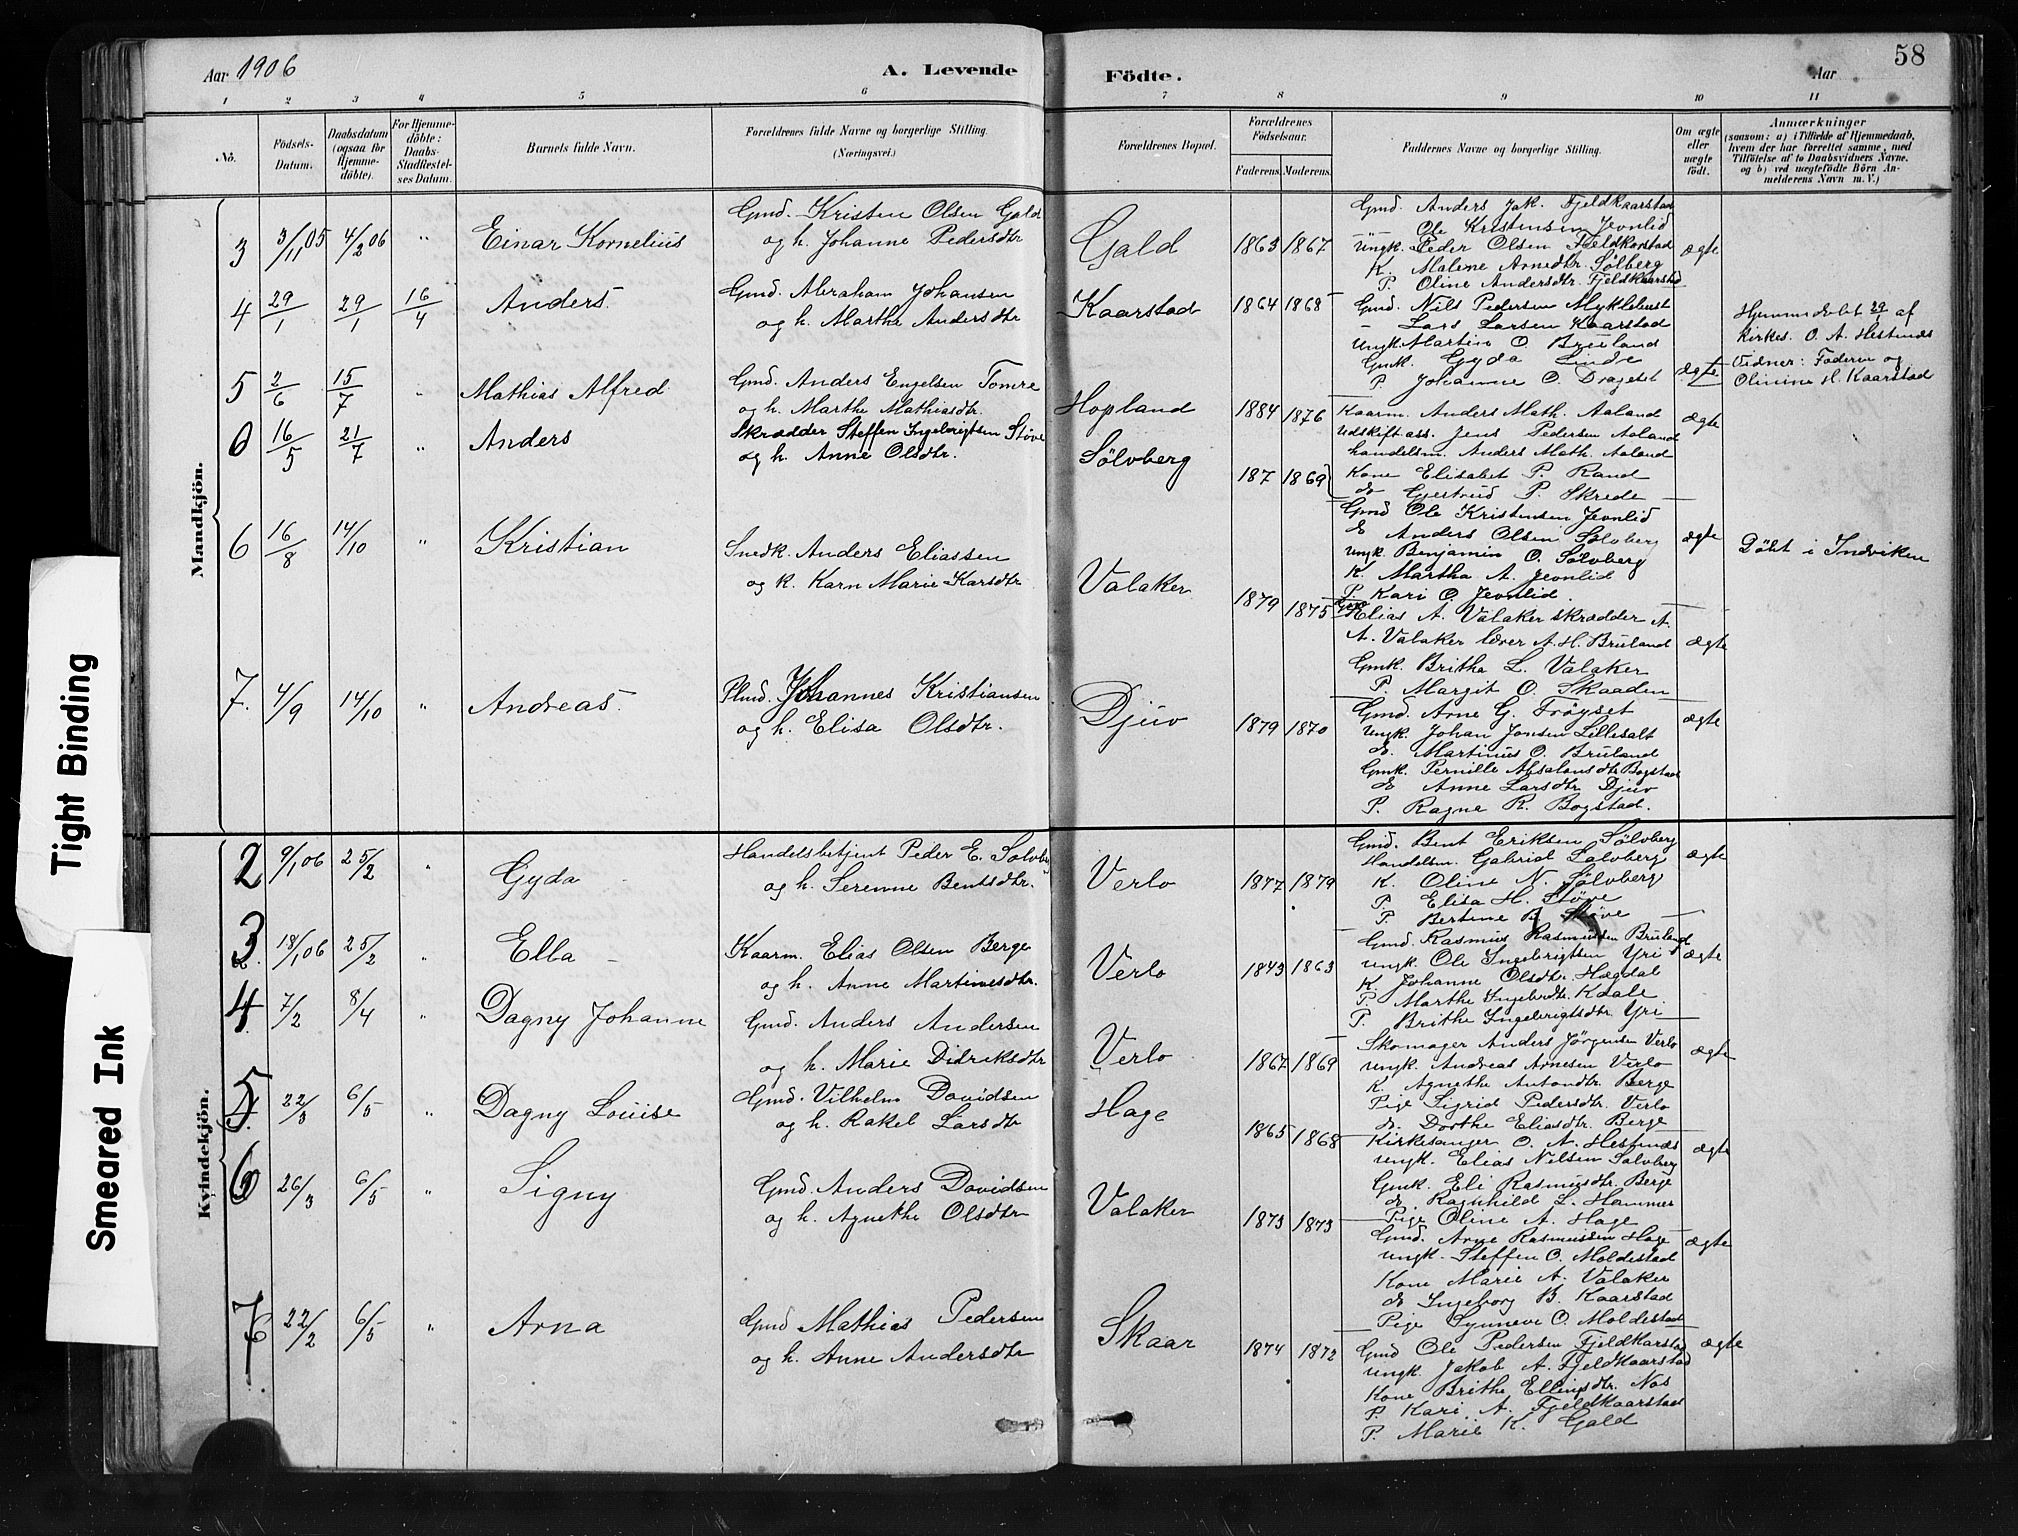 Aar 1906
A. Levende
Födte.
Aar
58
1 2 3 4 5 6 7 8 9 10 11
No.
Födsels-
Datum.
Daabsdatum
(ogsaa for
Hjemme-
döbte).
For Hjemme-
döbte:
Daabs-
Stadfæstel-
ses Datum.
Barnets fulde Navn.
Forældrenes fulde Navne og borgerlige Stilling.
(Næringsvei.)
Forældrenes Bopæl.
Forældrenes
Födselsaar.
Faderens. Moderens.
Faddernes Navne og borgerlige Stilling.
Om ægte
eller
uægte
födt.
Anmærkninger
(saasom: a) i Tilfælde af Hjemmedaab,
hvem der har forrettet samme, med
Tilföielse af to Daabsvidners Navne.
og b) ved uægtefödte Börn An-
melderens Navn m. V.)
Mandkjön.
3 3/11 05 4/2 06 " Einar Kornelius
Gmd. Kristen Olsen Gald
og h. Johanne Pedersdtr
Gald 1863 1867
Gmd. Anders Jak. Fjeldkaarstad
-"- Ole Kristensen Jevnlid
Ungk. Peder Olsen Fjeldkarstad
K. Malene Arnedtr. Sølberg
P. Oline Andersdtr. Fjeldkaarstad
ægte
4 29/1 29/1 16/4 Anders.
Gmd. Abraham Johansen
og h. Marthe Andersdtr
Kaarstad 1864 1868
Gmd. Nils Pedersen Myklebust
- Lars Larsen Kaarstad
Ungk. Martin O. Bruland
Gmk. Gyda Linde
P. Johanne O. Drageset
ægte
Hjemmedøbt 29/1 af
kirkes. O. A. Hestenæs
Vidner: Faderen og
Olinine H. Kaarstad
5 2/6 15/7 " Mathias Alfred
Gmd. Anders Engelsen Tomre
og h. Marthe Mathiasdtr.
Hopland 1884 1876
Kaarm. Anders Math. Aaland
Udskift.ass. Jens Pedersen Aaland
handelsm. Anders Math. Aaland
Kone Elisabet P. Rand
do Gjertrud P. Skrede
ægte
6 16/5 21/7 " Anders
Skrædder Steffen Ingebrigtsen Støve
og h. Anne Olsdtr.
Sølvberg 187 1869
Gmd Ole Kristensen Jevnlid
do Anders Olsen Sølvberg
Ungk. Benjamin O. Sølvberg
K. Martha A. Jevnlid
P. Kari O. Jevnlid.
ægte
6 16/8 14/10 " Kristian
Snedk. Anders Eliassen
og k. Karn Marie Karsdtr
Valaker 1879 1875
Elias A. Valaker skrædder A.
A. Valaker lærer A. H. Bruland
Gmk. Britha L. Valaker
P. Margit O. Skaaden
ægte
Döbt i Indviken
7. 4/9 14/10 " Andreas.
Plmd. Johannes Kristiansen
og h. Elisa Olsdtr.
Djuv 1879 1870
Gmd. Arne G. Frøyset
Ungk. Johan Jonsen Lillesalt
do. Martinus O. Bruland
Gmk. Pernille Absalonsdtr Bogstad
do Anne Larsdtr Djuv
P. Ragne R. Bogstad.
ægte
Kvindekjön.
2 9/1 06 25/2 " Gyda
Handelsbetjent Peder E. Sølvbg
og h. Serenne Bentsdtr.
Verlo 1877 1879
Gmd. Bent Eriksen Sølvberg
Handelsm. Gabriel Sølvberg
K. Oline N. Sølvberg
P. Elisa H. Støve
P. Bertine B. Støve
ægte
3 18/1 06 25/2 " Ella
Kaarm. Elias Olsen Berge
og h. Anne Martinusdtr.
Verlo 1843 1863
Gmd. Rasmus Rasmussen Bruland
Ungk. Ole Ingebrigtsen Yri
K. Johanne Olsdtr. Hægdal
P. Marthe Ingebrdtr. Kdale
P. Brithe Ingebrigtsdtr Yri
ægte
4 7/2 8/4 " Dagny Johanne
Gmd. Anders Andersen
og h. Marie Didriksdtr
Verlo 1867 1869
Skomager Anders Jørgensen Verlo
Ungk. Andreas Arnesen Verlo
K. Agnethe Antondtr. Berge
Pige Sigrid Pedersdtr. Verlo
do. Dorthe Eliasdtr. Berge
ægte
5 22/3 6/5 " Dagny Louise
Gmd. Vilhelm Davidsen
og h. Rakel Larsdtr
Hage 1865 1868
Kirkesanger O. A. Hestenæs
Ungk. Elias Nilsen Sølvberg
Gmk. Eli Rasmusdtr. Berge
do Ragnhild L. Hammer
Pige Oline A. Hage
ægte
6 26/3 6/5 " Signy
Gmd. Anders Davidsen
og h. Agnethe Olsdtr
Valaker 1873 1873
Gmd. Arne Rasmussen Hage
Ungk. Steffen O. Moldestad
Kone Marie A. Valaker
do Ingeborg B. Kaarstad
Pige Synneve O. Moldestad
ægte
7 22/2 6/5 " Arna
Gmd Mathias Pedersen
og h. Anne Andersdtr
Skaar 1874 1872
Gmd Ole Pedersen Fjeldkarstad
Ungk. Jakob A. Fjeldkaarstad
Kone Brithe Ellingsdtr. Nos
P. Kari A. Fjeldkaarstad
P. Marie K. Gald
ægte
Tight Binding
Smeared Ink